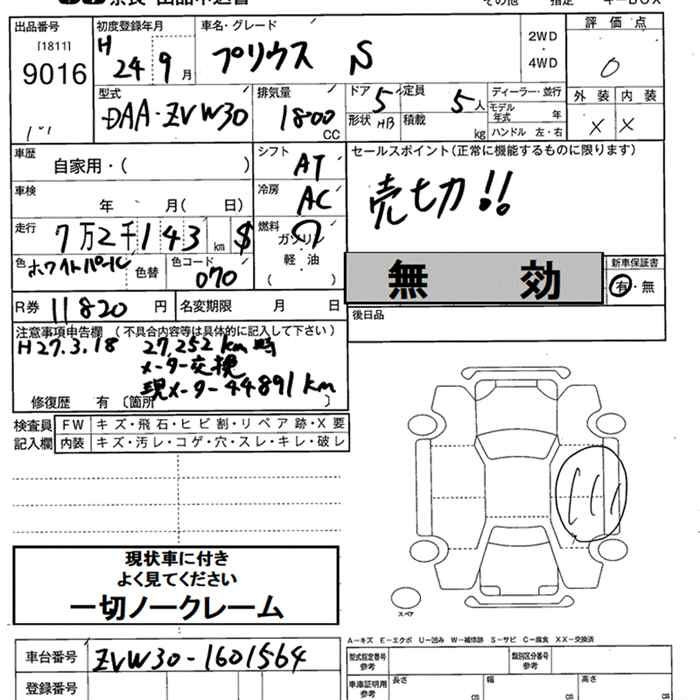 出品番号
[1811]
9016
初度登録年月
H 24 9 月
車名・グレード
プリウス S
2WD
・
4WD
評価点
0
外装 内装
X X
型式
DAA-ZVW30
排気量
1800
CC
ドア 5
形状 HB
定員
5 人
積載
kg
ディーラー・並行
モデル
年式 年
ハンドル 左・右
車歴
自家用・( )
シフト
AT
セールスポイント(正常に機能するものに限ります)
売切!!
車検
年 月( 日)
冷房
AC
走行
7万2千143 km $
燃料
ガソリン
軽・油
( )
色
ホワイトパール
色替
色コード
070
無 効
新車保証書
有・無
R券 11820 円
名変期限 月 日
後日品
注意事項申告欄 (不具合内容等は具体的に記入して下さい)
H27.3.18 27,252km時
メーター交換
現メーター44891km
修復歴 有 〔箇所 〕
検査員
記入欄
FW キズ・飛石・ヒビ割・リペア跡・X要
内装 キズ・汚レ・コゲ・穴・スレ・キレ・破レ
現状車に付き
よく見てください
一切ノークレーム
スペア
A-キズ E-エクボ U-凹み W-補修跡 S-サビ C-腐食 XX-交換済
車台番号 ZVW30-1601564
登録番号
型式指定番号
参考
類別区分番号
参考
車庫証明用
参考
長さ
幅
高さ